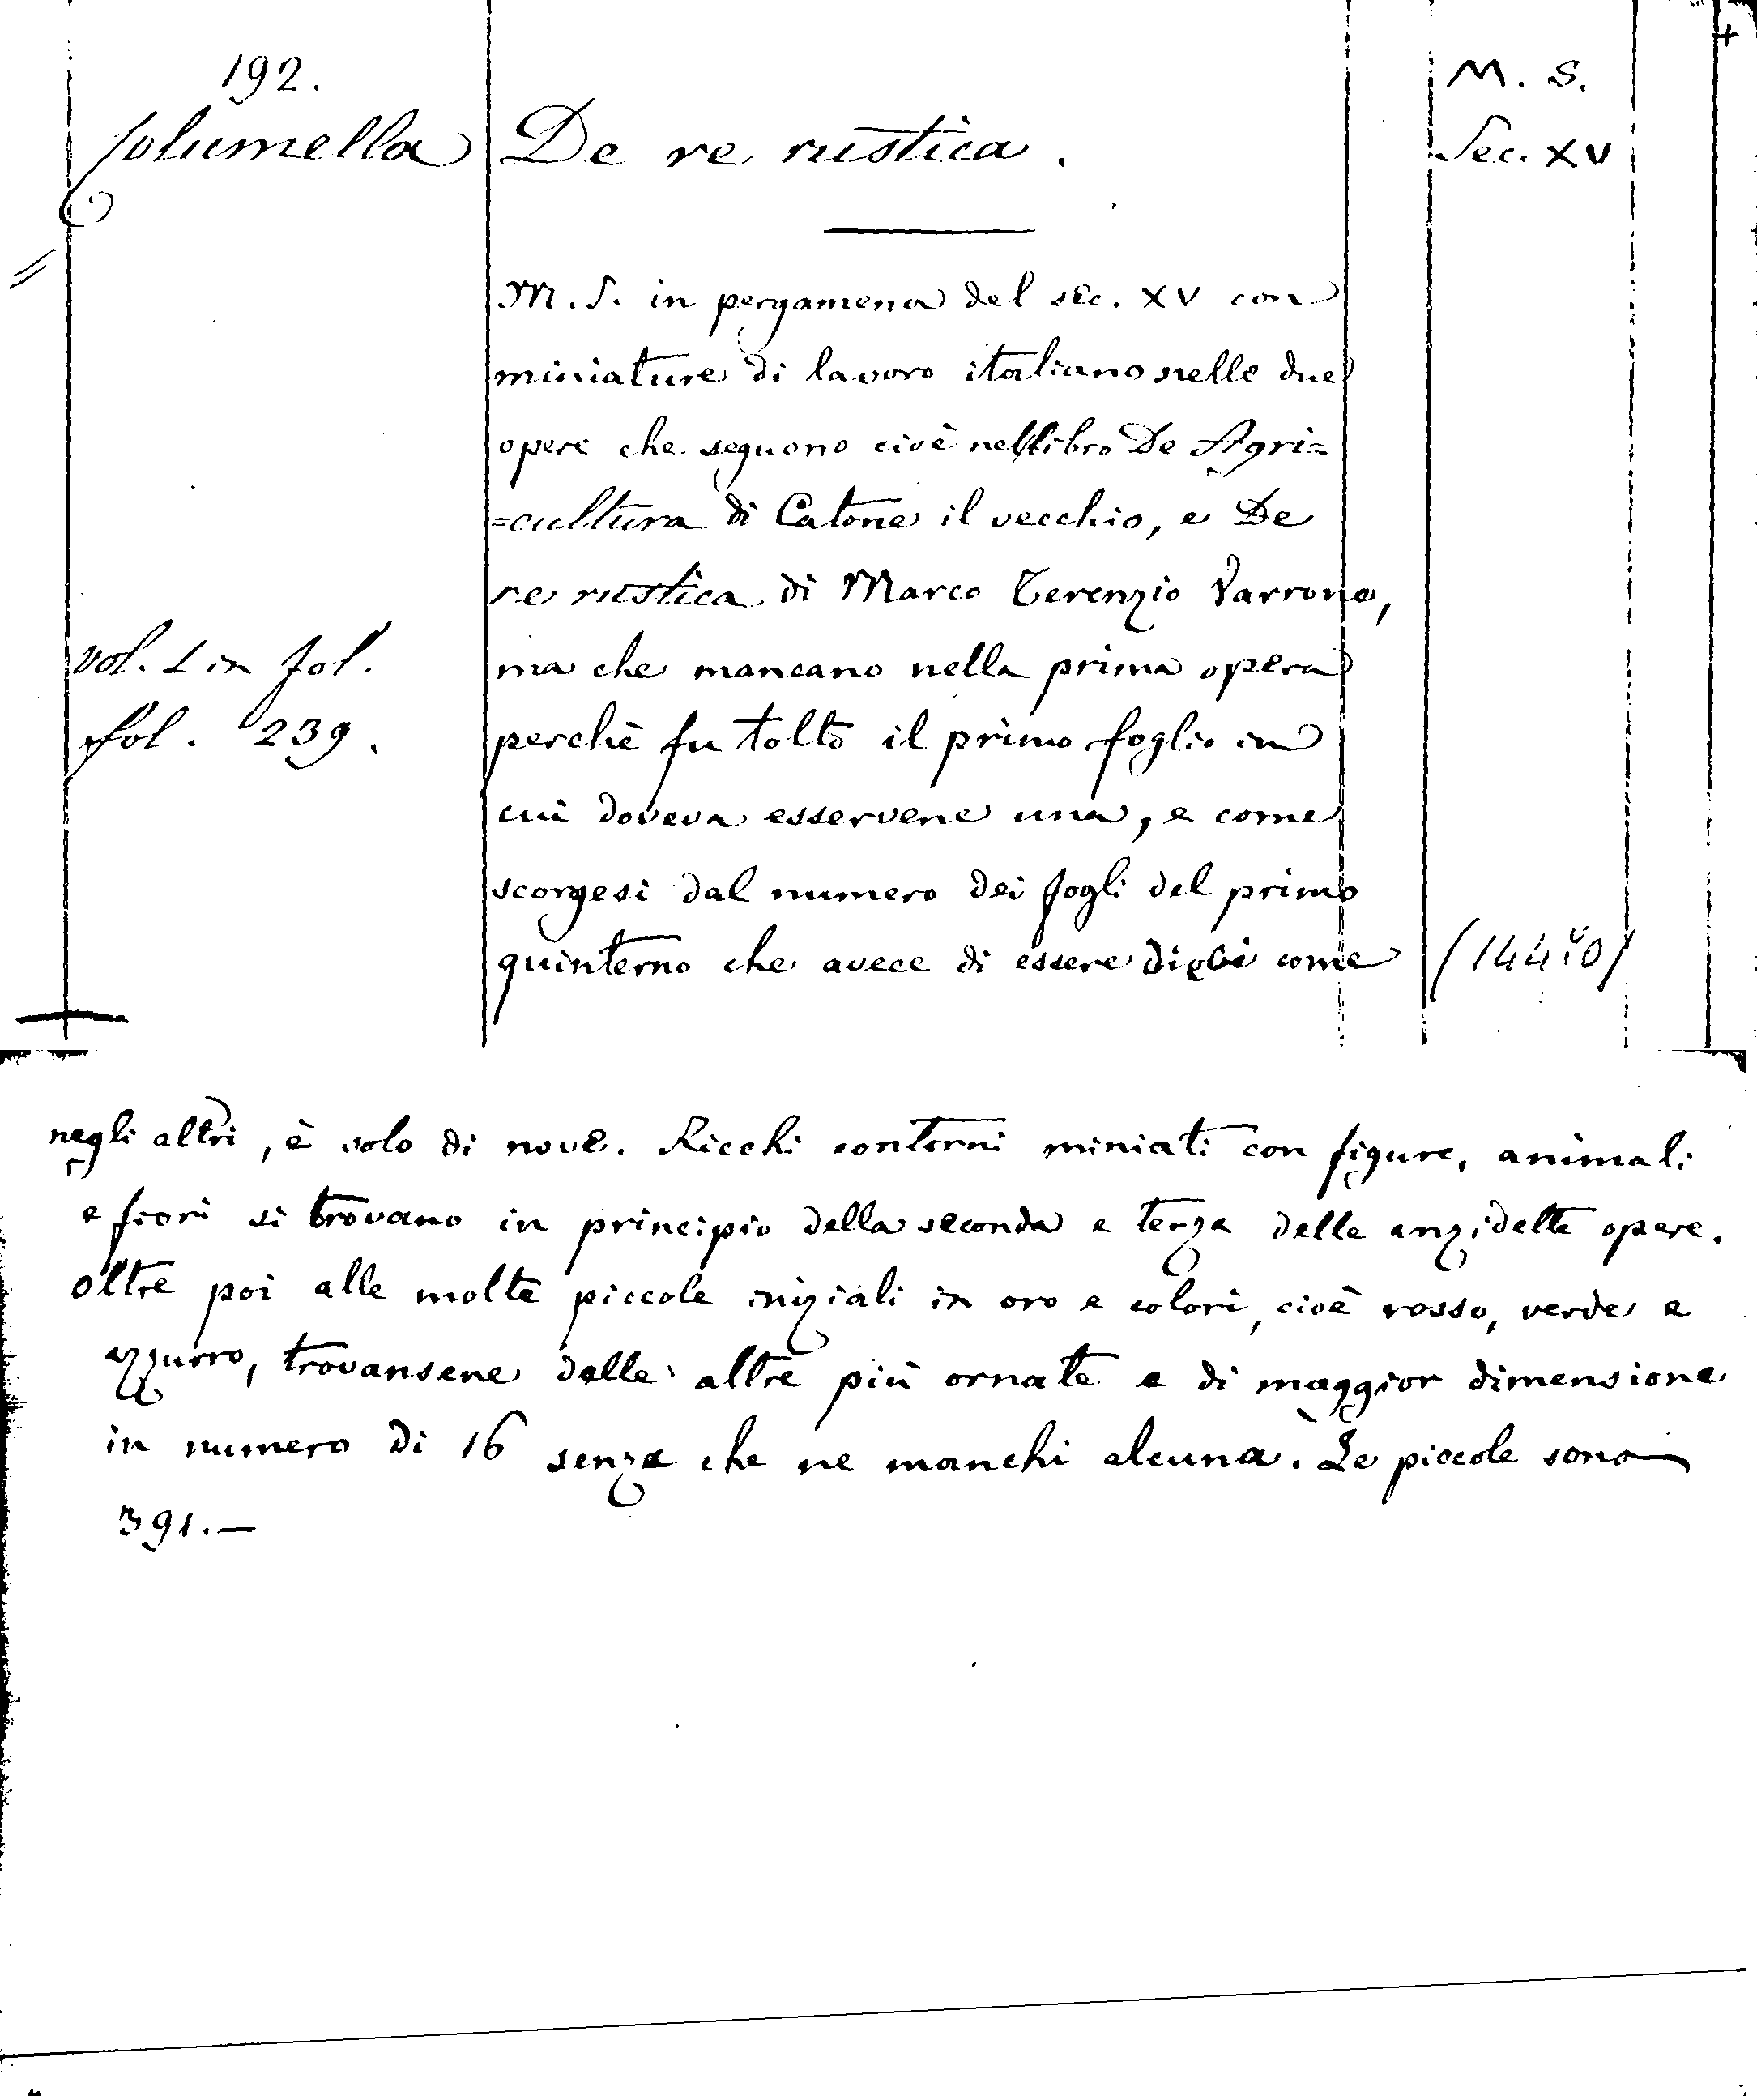 192.
M. S.
Columella
De re rustica.
Sec. XV
M. S. in pergamena del sec. XV con
miniature di lavoro italiano nelle due
opere che seguono cioè nel libro De Agri=
=cultura di Catone il vecchio, e De
re rustica di Marco Terenzio Varrone,
vol. 1 in fol.
ma che mancano nella prima opera
fol. 239.
perchè fu tolto il primo foglio in
cui doveva esservene una, e come
scorgesi dal numero dei fogli del primo
quinterno che avece di essere dieci come
negli altri, è solo di nove. Ricchi contorni miniati con figure, animali
e fiori si trovano in principio della seconda e terza delle anzidette opere.
Oltre poi alle molte piccole iniziali in oro e colori, cioè rosso, verde e
azzurro, trovansene delle altre più ornate e di maggior dimensione
in numero di 16 senza che ne manchi alcuna. Le piccole sono
391.—